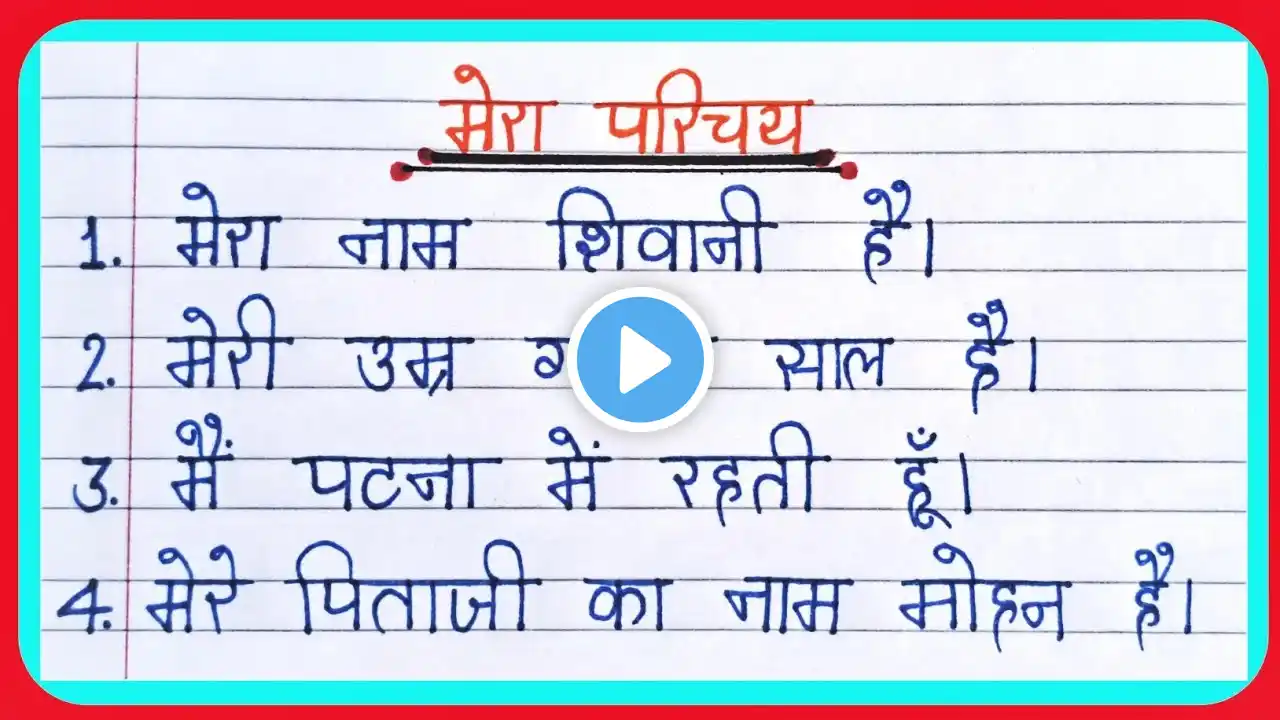 मेरा परिचय
1. मेरा नाम शिवानी है।
2. मेरी उम्र साल है।
3. मैं पटना में रहती हूँ।
4. मेरे पिताजी का नाम मोहन है।